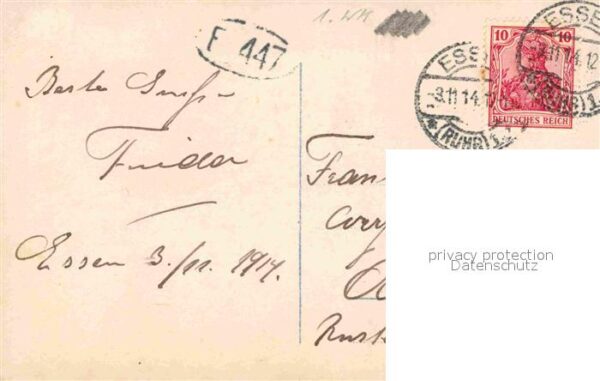 1. WK
F 447
10 10
DEUTSCHES REICH
ESSEN
3.11.14.
(RUHR) 1
ESSE
3.11.14. 12
(RUHR) 1
Beste Grüße
Frieda
Essen 3./11. 1914.
Fran
privacy protection
Datenschutz